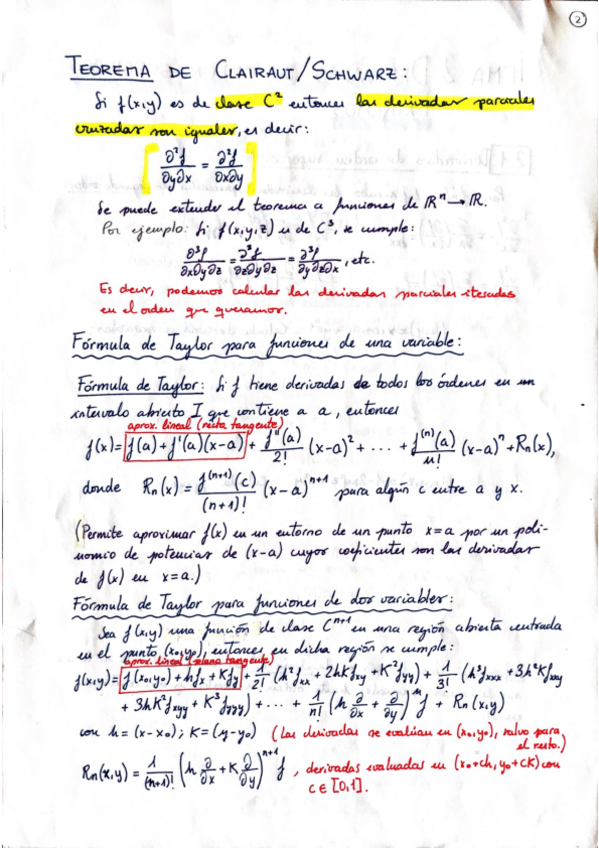 2
TEOREMA DE CLAIRAUT/SCHWARZ:
Si f(x,y) es de clase C² entonces las derivadas parciales
cruzadas son iguales, es decir:
∂²f/∂y∂x = ∂²f/∂x∂y
Se puede extender el teorema a funciones de ℝⁿ → ℝ.
Por ejemplo: Si f(x,y,z) es de C³, se cumple:
∂³f/∂x∂y∂z = ∂³f/∂z∂y∂x = ∂³f/∂y∂z∂x, etc.
Es decir, podemos calcular las derivadas parciales iteradas
en el orden que queramos.
Fórmula de Taylor para funciones de una variable:
Fórmula de Taylor: Si f tiene derivadas de todos los órdenes en un
intervalo abierto I que contiene a a, entonces
aprox. lineal (recta tangente)
f(x) = f(a) + f'(a)(x-a) + f''(a)/2! (x-a)² + ... + f⁽ⁿ⁾(a)/n! (x-a)ⁿ + Rn(x),
donde Rn(x) = f⁽ⁿ⁺¹⁾(c)/(n+1)! (x-a)ⁿ⁺¹ para algún c entre a y x.
(Permite aproximar f(x) en un entorno de un punto x=a por un poli-
nomio de potencias de (x-a) cuyos coeficientes son las derivadas
de f(x) en x=a.)
Fórmula de Taylor para funciones de dos variables:
Sea f(x,y) una función de clase Cⁿ⁺¹ en una región abierta centrada
en el punto (x₀,y₀), entonces, en dicha región se cumple:
aprox. lineal (plano tangente)
f(x,y) = f(x₀,y₀) + hfx + Kfy + 1/2! (h²fxx + 2hKfxy + K²fyy) + 1/3! (h³fxxx + 3h²Kfxxy
+ 3hK²fxyy + K³fyyy) + ... + 1/n! (h ∂/∂x + ∂/∂y)ⁿ f + Rn(x,y)
con h = (x-x₀); K = (y-y₀) (Las derivadas se evalúan en (x₀,y₀), salvo para
el resto.)
Rn(x,y) = 1/(n+1)! (h ∂/∂x + K ∂/∂y)ⁿ⁺¹ f, derivadas evaluadas en (x₀+ch, y₀+cK) con
c ∈ [0,1].